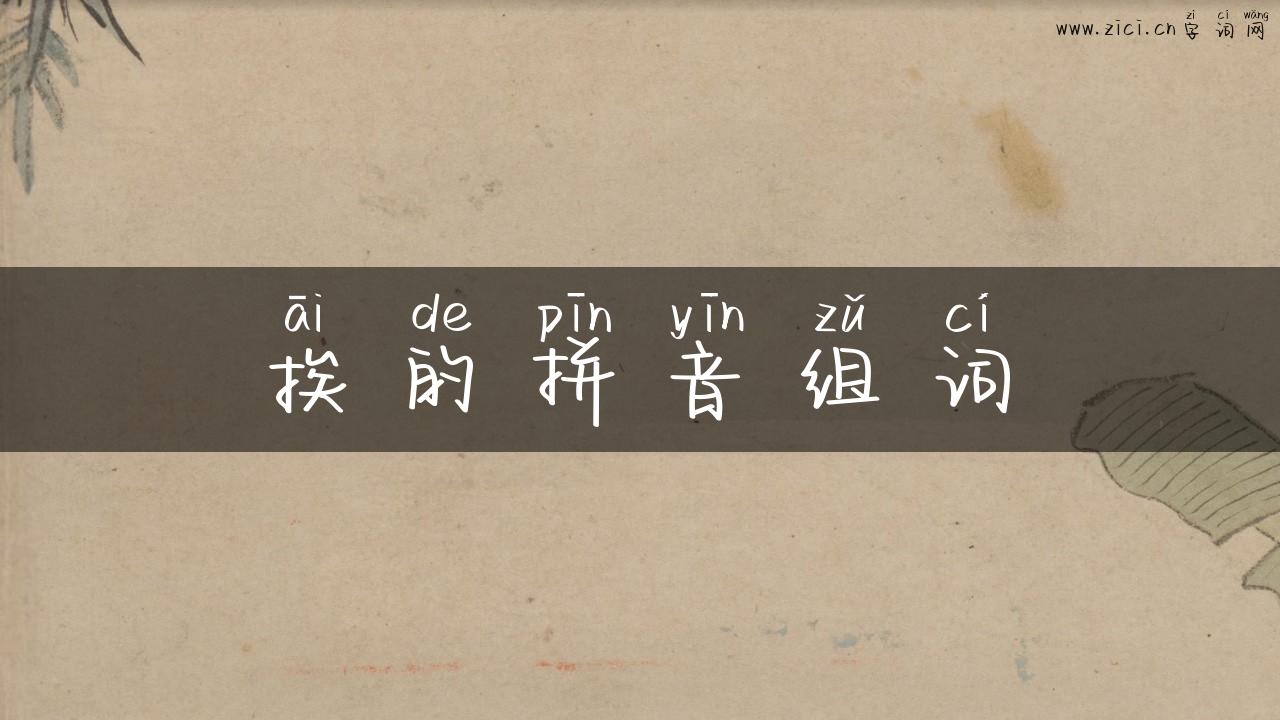 zì cí wǎng
www.zici.cn 字词网
āi de pīn yīn zǔ cí
挨的拼音组词